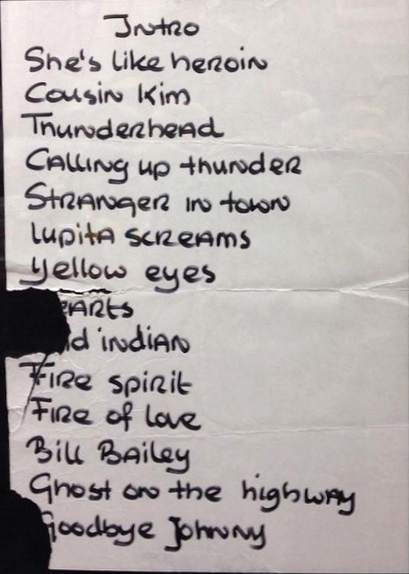 Intro
She's like heroin
Cousin Kim
Thunderhead
Calling up thunder
Stranger in town
Lupita screams
Yellow eyes
earts
d indian
Fire spirit
Fire of love
Bill Bailey
Ghost on the highway
Goodbye Johnny